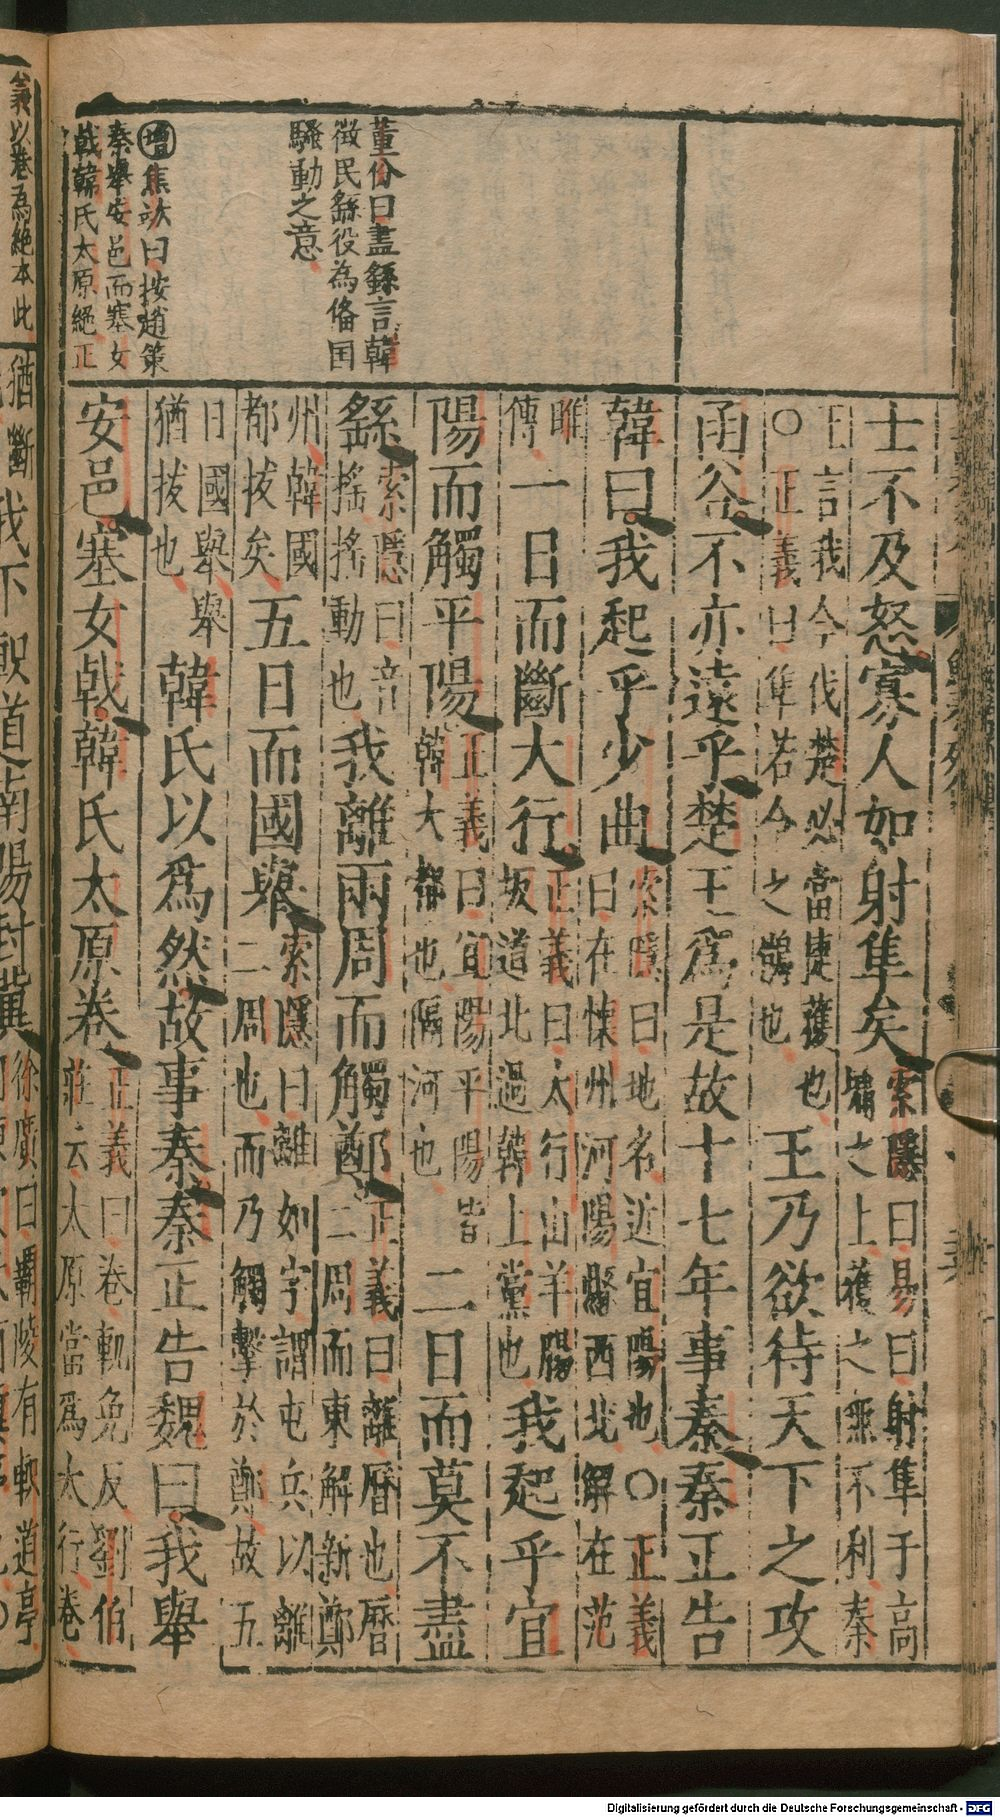 董份曰盡繇言韓
徴民繇役為俻国
騷動之意
增焦竑曰按趙策
秦舉安邑而塞女
戟韓氏太原絶正
士不及怒寡人如射隼矣索隱曰易曰射隼于高
墉之上獲之無不利秦
王言我今伐楚必當捷獲也
〇正義曰隼若今之鶻也王乃欲待天下之攻
函谷不亦遠乎楚王爲是故十七年事秦秦正告
韓曰我起乎少曲索隱曰地名近宜陽也〇正義
曰在懷州河陽縣西北解在范
雎
傳一日而斷大行正義曰太行山羊腸
坂道北過韓上黨也我起乎宜
陽而觸平陽正義曰宜陽平陽皆
韓大都也隔河也二日而莫不盡
繇索隱曰音
搖搖動也我離兩周而觸鄭正義曰離曆也曆
二周而東觧新鄭
州韓國
都拔矣五日而國舉索隱曰離如字謂屯兵以離
二周也而乃觸擊於鄭故五
日國舉舉
猶拔也韓氏以爲然故事秦秦正告魏曰我舉
安邑塞女戟韓氏太原卷正義曰卷軌免反劉伯
莊云太原當爲太行卷
義以卷爲絶本此
猶斷
我下軹道南陽封冀徐廣曰霸陵有軹道亭
Digitalisierung gefördert durch die Deutsche Forschungsgemeinschaft - DFG